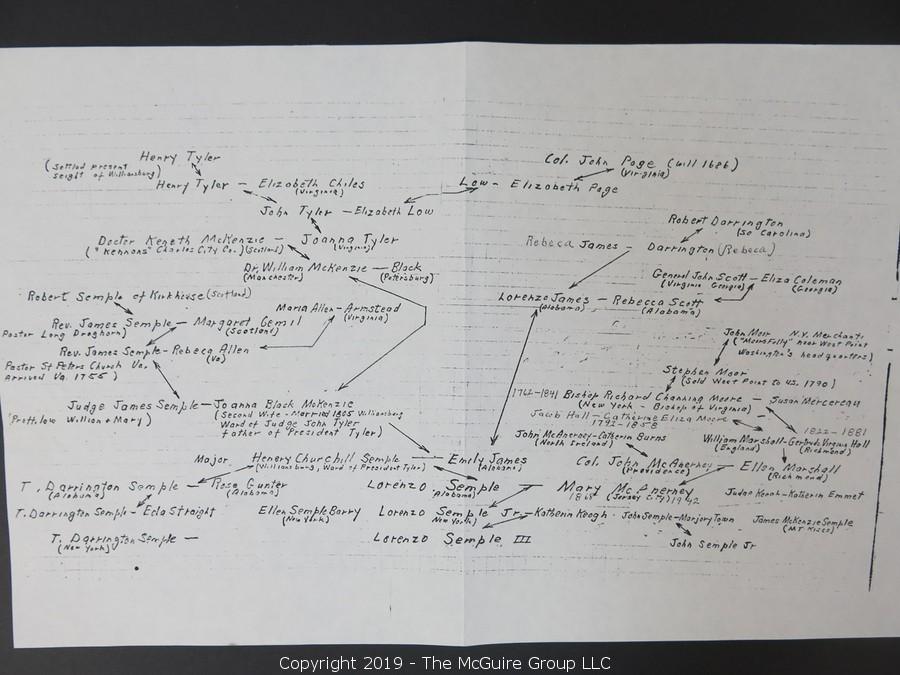 Henry Tyler
(Settled present
seight of Williamsburg)
Col. John Page (will 1686)
(Virginia)
Henry Tyler — Elizabeth Chiles
(Virginia)
Low — Elizabeth Page
John Tyler — Elizabeth Low
Robert Darrington
(So Carolina)
Doctor Keneth McKenzie — Joanna Tyler
("Kennons" Charles City Co.) (Scotland) (Virginia)
Rebeca James — Darrington (Rebeca)
Dr. William McKenzie — Black
(Manchester) (Petersburg)
General John Scott — Eliza Coleman
(Virginia Georgia) (Georgia)
Robert Semple of Kirkhouse (Scotland)
Maria Allen — Armstead
(Virginia)
Lorenzo James — Rebecca Scott
(Alabama) (Alabama)
Rev. James Semple — Margaret Gemil
Pastor Long Dreghorn) (Scotland)
John Moor N.Y. Merchant
("Moors Folly" near West Point
Washington's headquarters)
Rev. James Semple — Rebeca Allen
(Va)
Pastor St Peters Church Va.
Arrived Va. 1755)
Stephen Moor
(Sold West Point to U.S. 1790)
1762-1841 Bishop Richard Channing Moore — Susan Mercereau
(New York - Bishop of Virginia)
Judge James Semple — Joanna Black McKenzie
(Second Wife - Married 1805 Williamsburg
Ward of Judge John Tyler
father of President Tyler)
Proff. law William + Mary)
Jacob Hall — Catherine Eliza Moore
1772-1858
1822-1881
John McAnerney — Catherin Burns
(North Ireland)
William Marshall — Gertrude Virginia Hall
(England) (Richmond)
Major Henery Churchill Semple — Emily James
(Williamsburg, Ward of President Tyler) (Alabama)
Col. John McAnerney — Ellen Marshall
(Providence) (Richmond)
T. Darrington Semple — Rose Gunter
(Alabama) (Alabama)
Lorenzo Semple — Mary McAnerney
(Alabama) (Jersey City) 1942
Judge Keogh — Katherin Emmet
T. Darrington Semple — Eda Straight
Ellen Semple Barry
(New York)
Lorenzo Semple Jr. — Katherin Keogh
(New York)
John Semple — Marjory Town
James McKenzie Semple
(MT Kisco)
T. Darrington Semple —
(New York)
Lorenzo Semple III
John Semple Jr
Copyright 2019 - The McGuire Group LLC